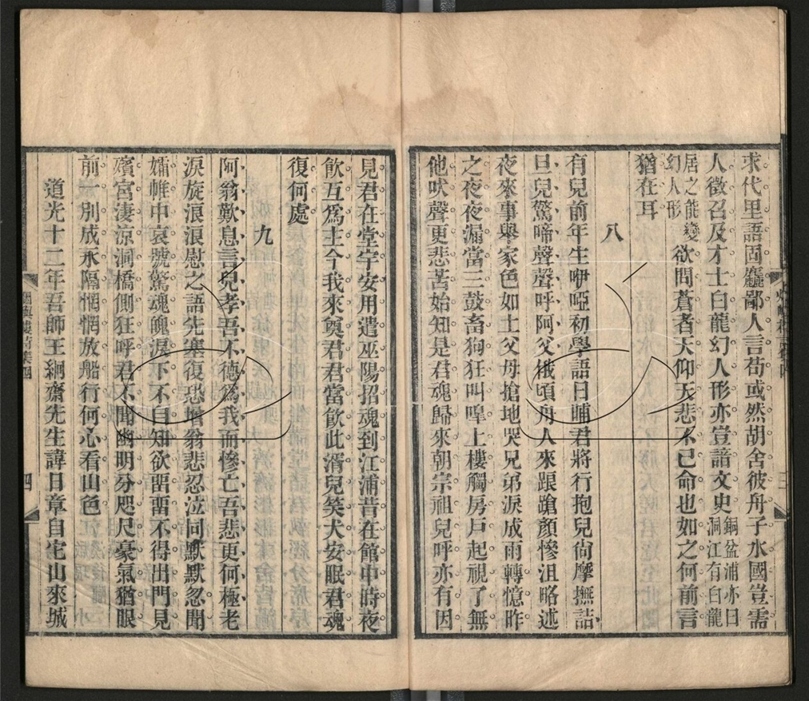 求代里語固麤鄙人言苟或然胡舍彼舟子水國豈需
人徵召及才士白龍幻人形亦豈諳文史 銅盆浦亦曰洞江有白龍
居之能變幻人形 欲問蒼者天仰天悲不已命也如之何前言
猶在耳
八
有兒前年生咿啞初學語日晡君將行抱兒尙摩撫詰
旦兒驚啼聲聲呼阿父俄頃舟人來踉蹌顏慘沮略述
夜來事舉家色如土父母搶地哭兄弟淚成雨轉憶昨
之夜夜漏當三鼓畜狗狂叫嘷上樓觸房戶起視了無
他吠聲更悲苦始知是君魂歸來朝宗祖兒呼亦有因
見君在堂宇安用遣巫陽招魂到江浦昔在館中時夜
飮互爲主今我來奠君君當飮此湑兒笑犬安眠君魂
復何處
九
阿翁歎息言兒孝吾不德爲我而慘亡吾悲更何極老
淚旋浪浪慰之語先塞復恐增翁悲忍泣同默默忽聞
孀帷中哀號驚魂魄淚下不自知欲留留不得出門見
殯宮凄涼洞橋側狂呼君不聞幽明分咫尺豪氣猶眼
前一別成永隔惘惘放船行何心看山色
道光十二年吾師王絅齋先生諱日章自屯山來城
四